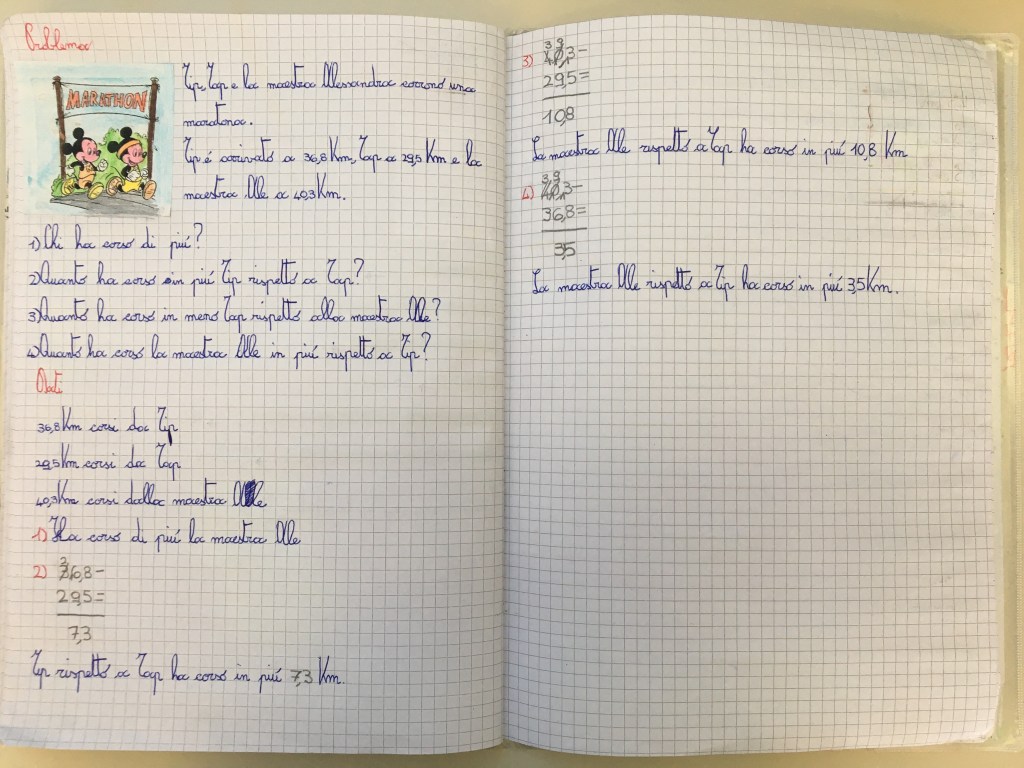 Problema
MARATHON
Tip, Tap e la maestra Alessandra corrono una
maratona.
Tip é arrivato a 36,8 Km, Tap a 29,5 Km e la
maestra Alle a 40,3 Km.
1) Chi ha corso di piú?
2) Quanto ha corso in piú Tip rispetto a Tap?
3) Quanto ha corso in meno Tap rispetto alla maestra Alle?
4) Quanto ha corso la maestra Alle in piú rispetto a Tip?
Dati
36,8 Km corsi da Tip
29,5 Km corsi da Tap
40,3 Km corsi dalla maestra Alle
1) Ha corso di piú la maestra Alle
2) 36,8-
29,5=
7,3
Tip rispetto a Tap ha corso in piú 7,3 Km.
3) 40,3-
29,5=
10,8
La maestra Alle rispetto a Tap ha corso in piú 10,8 Km
4) 40,3-
36,8=
3,5
La maestra Alle rispetto a Tip ha corso in piú 3,5 Km.